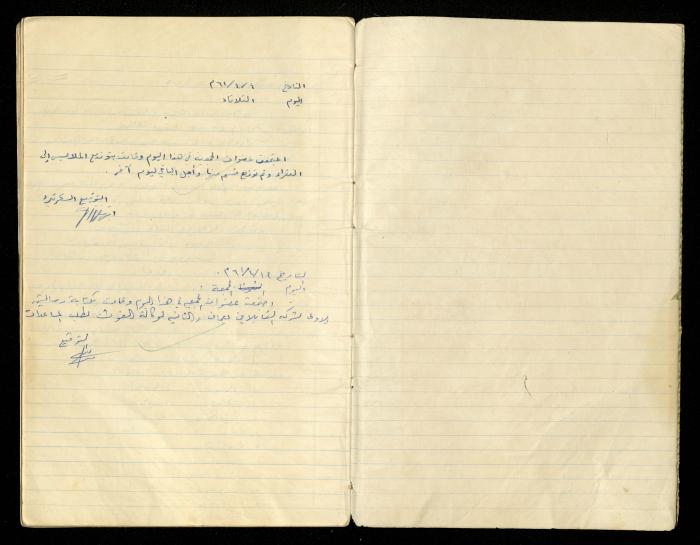 التاريخ ٩/٨/٦١م
اليوم الثلاثاء
اجتمعت عضوات الجمعية في هذا اليوم وقامت بتوزيع الملابس إلى
الفقراء وتم توزيع قسم منها وأجل الباقي ليوم آخر .
التوقيع السكرتيرة
التاريخ
اليوم الجمعة .
اجتمعت عضوات الجمعية في هذا اليوم وقامت بكتابة رسالتين
الاولى لشركة التابلاين بعمان والثانية لوكالة الغوث لطلب المساعدات
التوقيع